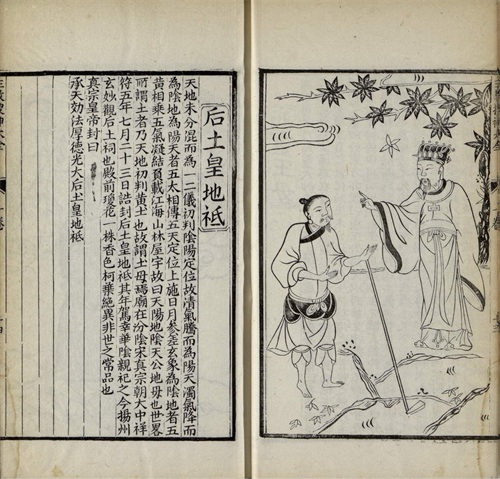 后土皇地祇
天地未分混而為一二儀初判陰陽定位故清氣騰而為陽天濁氣降而
為陰地為陽天者五太相傳五天定位上施日月參差玄象為陰地者五
黃相乘五氣凝結負載江海山林屋宇故曰天陽地陰天公地母也世畧
所謂土者乃天地初判黃土也故謂土母焉廟在汾陰宋真宗朝大中祥
符五年七月二十三日誥封后土皇地祇其年駕幸華陰親祀之今揚州
玄妙觀后土祠也殿前瓊花一株香色柯葉絕異非世之常品也
真宗皇帝封曰
承天効法厚德光大后土皇地祇